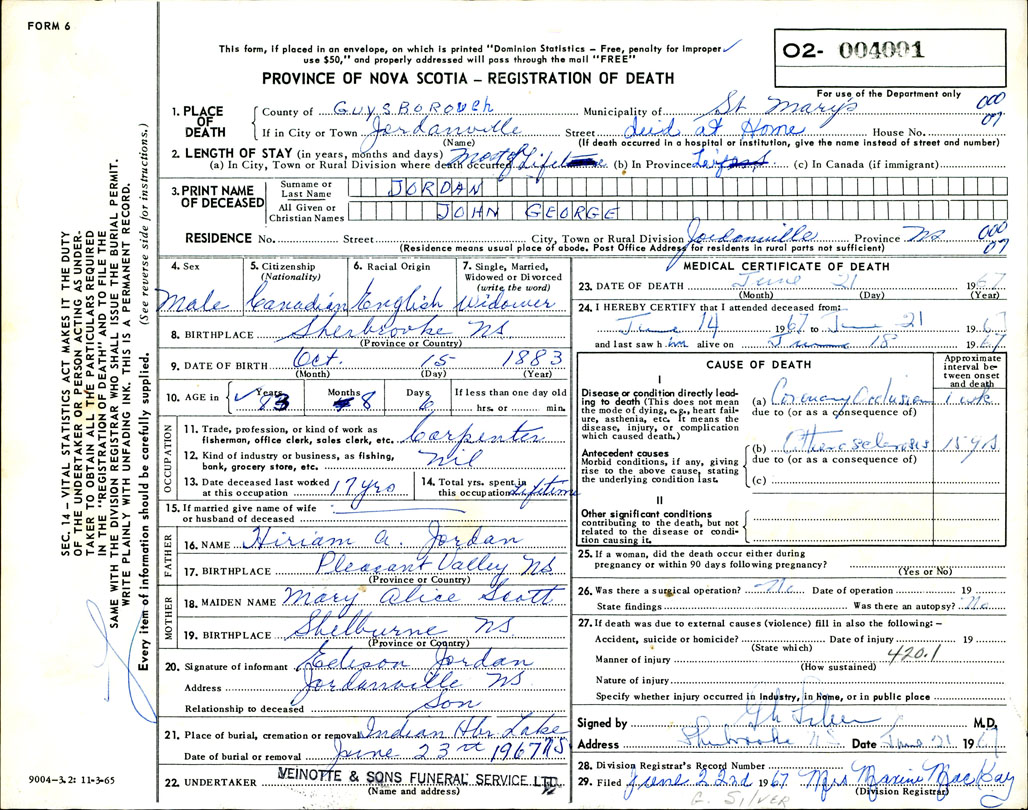 FORM 6
This form, if placed in an envelope, on which is printed "Dominion Statistics – Free, penalty for improper
use $50," and properly addressed will pass through the mail "FREE"
PROVINCE OF NOVA SCOTIA – REGISTRATION OF DEATH
O2- 004001
For use of the Department only
1. PLACE OF DEATH
County of GUYSBOROUGH Municipality of St Mary's 000
If in City or Town Jordanville Street died at Home House No. 07
(Name) (If death occurred in a hospital or institution, give the name instead of street and number)
2. LENGTH OF STAY (in years, months and days)
(a) In City, Town or Rural Division where death occurred Most of Lifetime (b) In Province (c) In Canada (if immigrant)
3. PRINT NAME OF DECEASED
Surname or Last Name JORDAN
All Given or Christian Names JOHN GEORGE
RESIDENCE No. Street City, Town or Rural Division Jordanville Province NS 000 07
(Residence means usual place of abode. Post Office Address for residents in rural parts not sufficient)
4. Sex
Male
5. Citizenship (Nationality)
Canadian
6. Racial Origin
English
7. Single, Married, Widowed or Divorced (write the word)
Widower
8. BIRTHPLACE Sherbrooke NS
(Province or Country)
9. DATE OF BIRTH Oct. 15 1883
(Month) (Day) (Year)
10. AGE in Years 83 Months 8 Days 6 If less than one day old
hrs. or min.
OCCUPATION
11. Trade, profession, or kind of work as
fisherman, office clerk, sales clerk, etc. Carpenter
12. Kind of industry or business, as fishing,
bank, grocery store, etc. Nil
13. Date deceased last worked
at this occupation 17 yrs
14. Total yrs. spent in
this occupation Lifetime
15. If married give name of wife
or husband of deceased
FATHER
16. NAME Hiriam A. Jordan
17. BIRTHPLACE Pleasant Valley NS
(Province or Country)
MOTHER
18. MAIDEN NAME Mary Alice Scott
19. BIRTHPLACE Shelburne NS
(Province or Country)
20. Signature of informant Edison Jordan
Address Jordanville NS.
Relationship to deceased Son
21. Place of burial, cremation or removal Indian Hbr Lake
Date of burial or removal June 23rd 1967 NS
22. UNDERTAKER VEINOTTE & SONS FUNERAL SERVICE LTD.
(Name and address)
MEDICAL CERTIFICATE OF DEATH
23. DATE OF DEATH June 21 1967
(Month) (Day) (Year)
24. I HEREBY CERTIFY that I attended deceased from:
June 14 1967 to June 21 1967
and last saw him alive on 18 1967
CAUSE OF DEATH
Approximate interval between onset and death
I
Disease or condition directly leading to death (This does not mean the mode of dying, e.g., heart failure, asthenia, etc. It means the disease, injury, or complication which caused death.)
(a) Coronary Occlusion 1 wk
due to (or as a consequence of)
Antecedent causes
Morbid conditions, if any, giving rise to the above cause, stating the underlying condition last.
(b) Atherosclerosis 15 yrs
due to (or as a consequence of)
(c)
II
Other significant conditions
contributing to the death, but not related to the disease or condition causing it.
25. If a woman, did the death occur either during
pregnancy or within 90 days following pregnancy?
(Yes or No)
26. Was there a surgical operation? No Date of operation 19
State findings Was there an autopsy? No
27. If death was due to external causes (violence) fill in also the following: –
Accident, suicide or homicide? Date of injury 19
(State which) 420.1
Manner of injury
(How sustained)
Nature of injury
Specify whether injury occurred in Industry, in Home, or in public place
Signed by M.D.
Address Sherbrooke NS. Date June 21 1967
28. Division Registrar's Record Number
29. Filed June 22nd 1967 Mrs Maxine MacKay
(Division Registrar)
G. SILVER
SEC. 14 – VITAL STATISTICS ACT MAKES IT THE DUTY
OF THE UNDERTAKER OR PERSON ACTING AS UNDER-
TAKER TO OBTAIN ALL THE PARTICULARS REQUIRED
IN THE "REGISTRATION OF DEATH" AND TO FILE THE
SAME WITH THE DIVISION REGISTRAR WHO SHALL ISSUE THE BURIAL PERMIT.
WRITE PLAINLY WITH UNFADING INK. THIS IS A PERMANENT RECORD.
Every item of information should be carefully supplied. (See reverse side for instructions.)
9004-3.2: 11-3-65